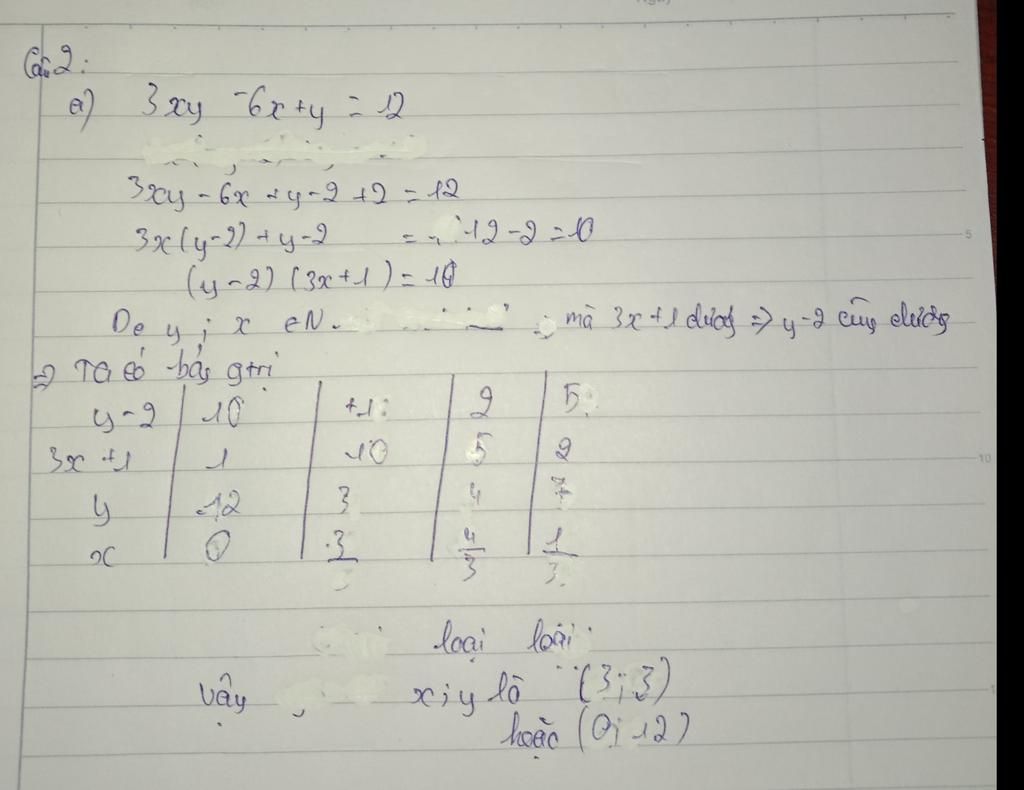 Câu 2:
a) 3xy - 6x + y = 12
3xy - 6x + y - 2 + 2 = 12
3x(y-2) + y - 2 = 12 - 2 = 10
(y-2)(3x+1) = 10
y; x ∈ N. mà 3x+1 dương => y-2 cũng dương
=> Ta có bảng gtrị
y-2 | 10 | +1 | 2 | 5
3x+1 | 1 | 10 | 5 | 2
y | 12 | 3 | 4 | 7
x | 0 | 3 | 4/3 | 1/3
loại loại
Vậy x; y là (3; 3)
hoặc (0; 12)